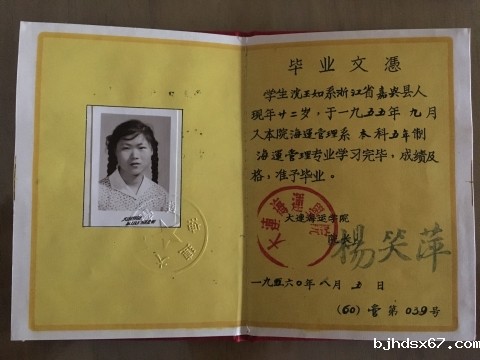 毕业文凭
学生沈玉如系浙江省嘉兴县人
现年廿二岁，于一九五五年九月
入本院海运管理系本科五年制
海运管理专业学习完毕，成绩及
格，准予毕业。
大連海運學院
大连海运学院
院长
楊笑萍
一九六〇年八月五日
(60)管第039号
bjhdsx67.com